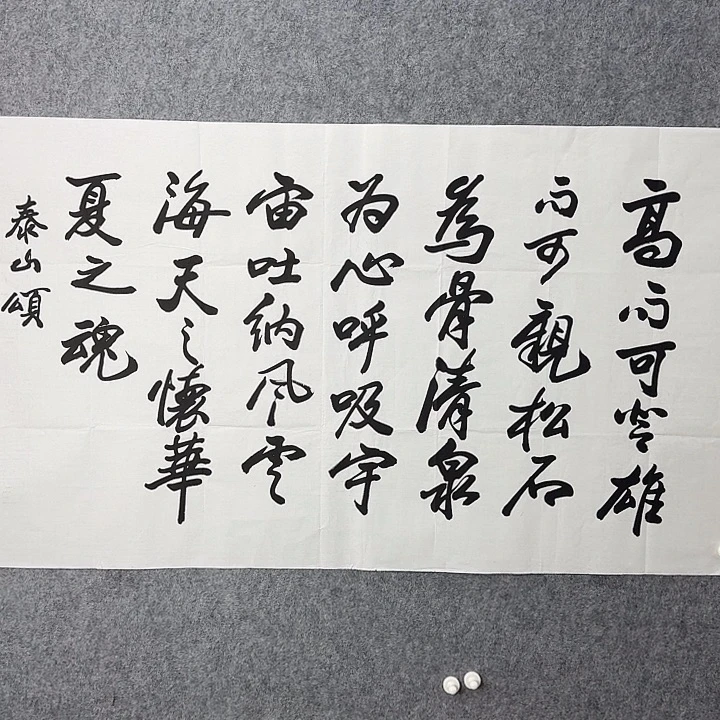 高而可登雄
而可親松石
為骨清泉
为心呼吸宇
宙吐納風雲
海天之懷華
夏之魂
泰山頌